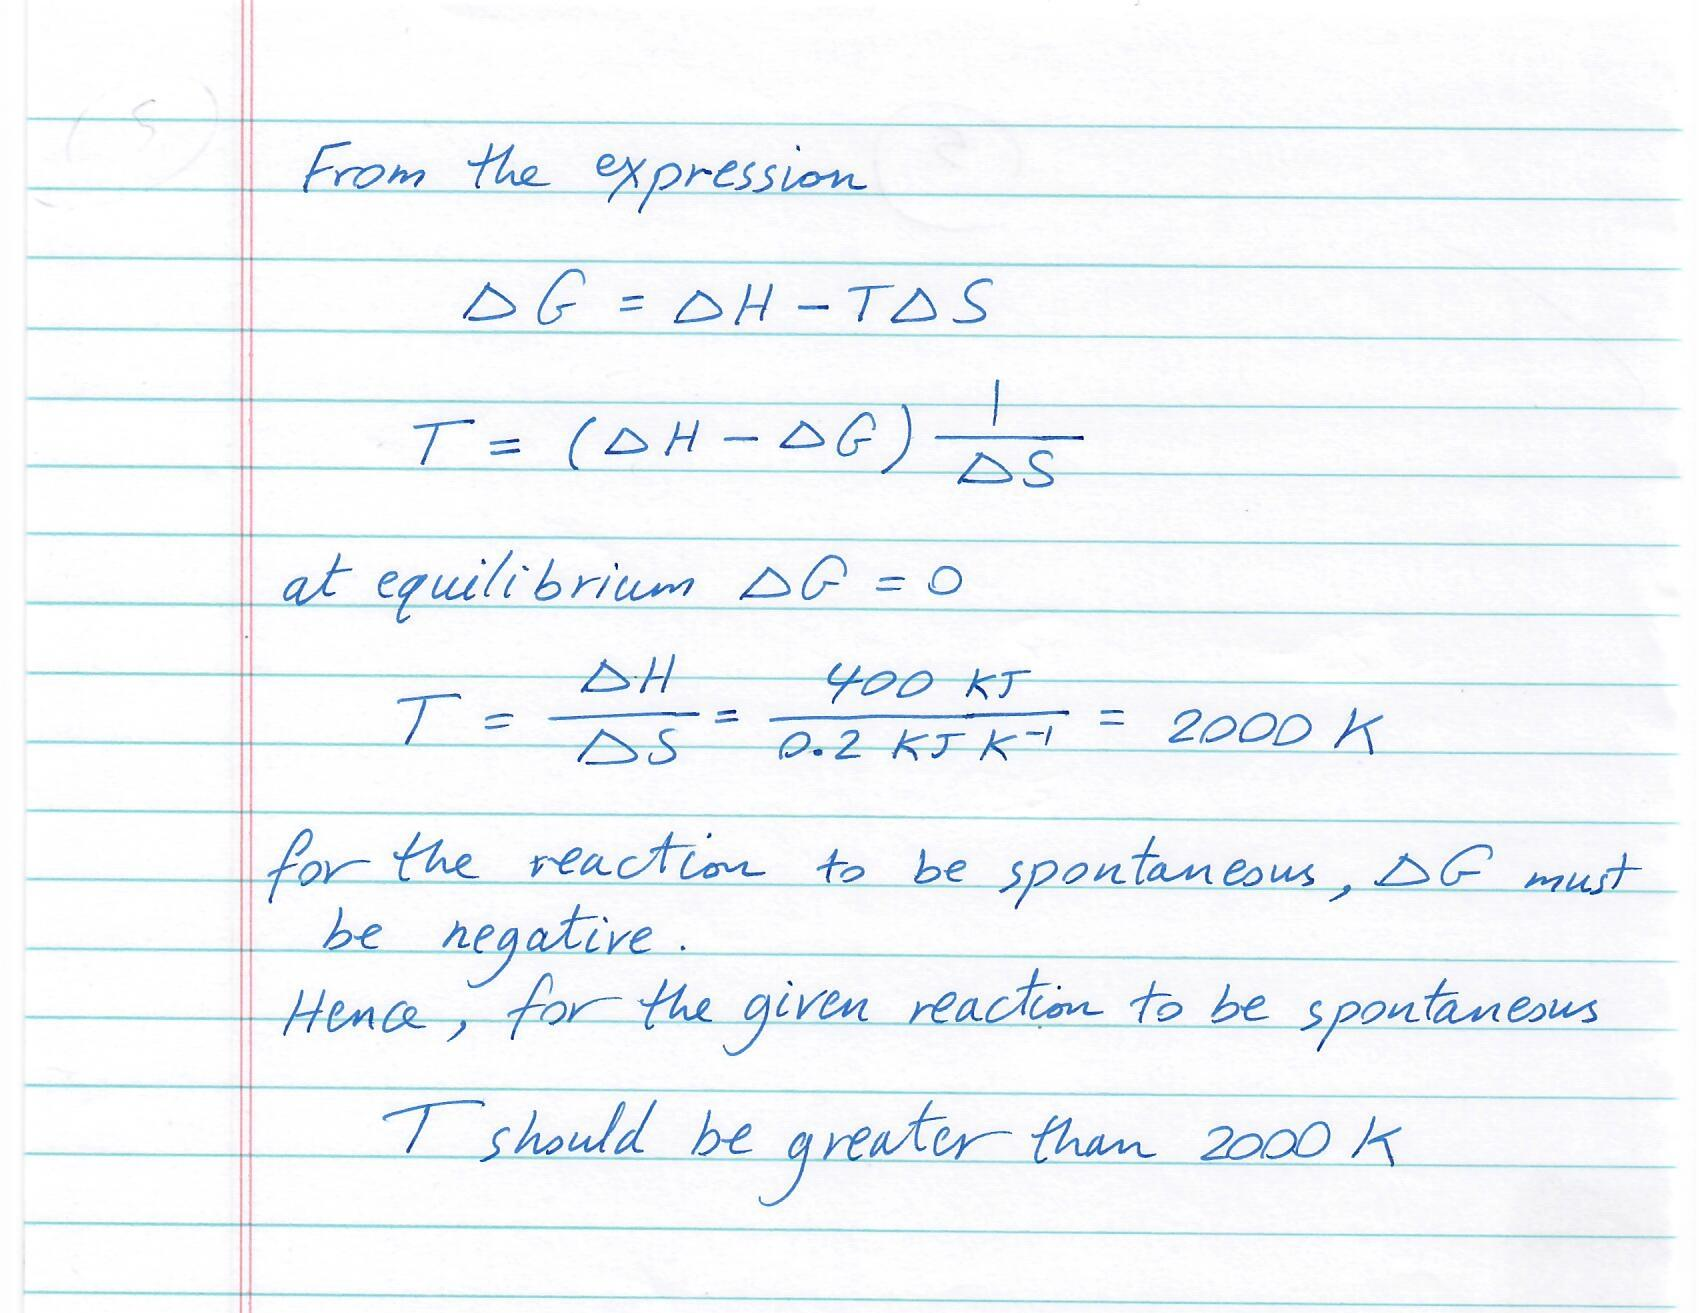 From the expression
ΔG = ΔH - TΔS
T = (ΔH - ΔG) 1/ΔS
at equilibrium ΔG = 0
T = ΔH/ΔS = 400 KJ / 0.2 KJ K⁻¹ = 2000 K
for the reaction to be spontaneous, ΔG must
be negative.
Hence, for the given reaction to be spontaneous
T should be greater than 2000 K